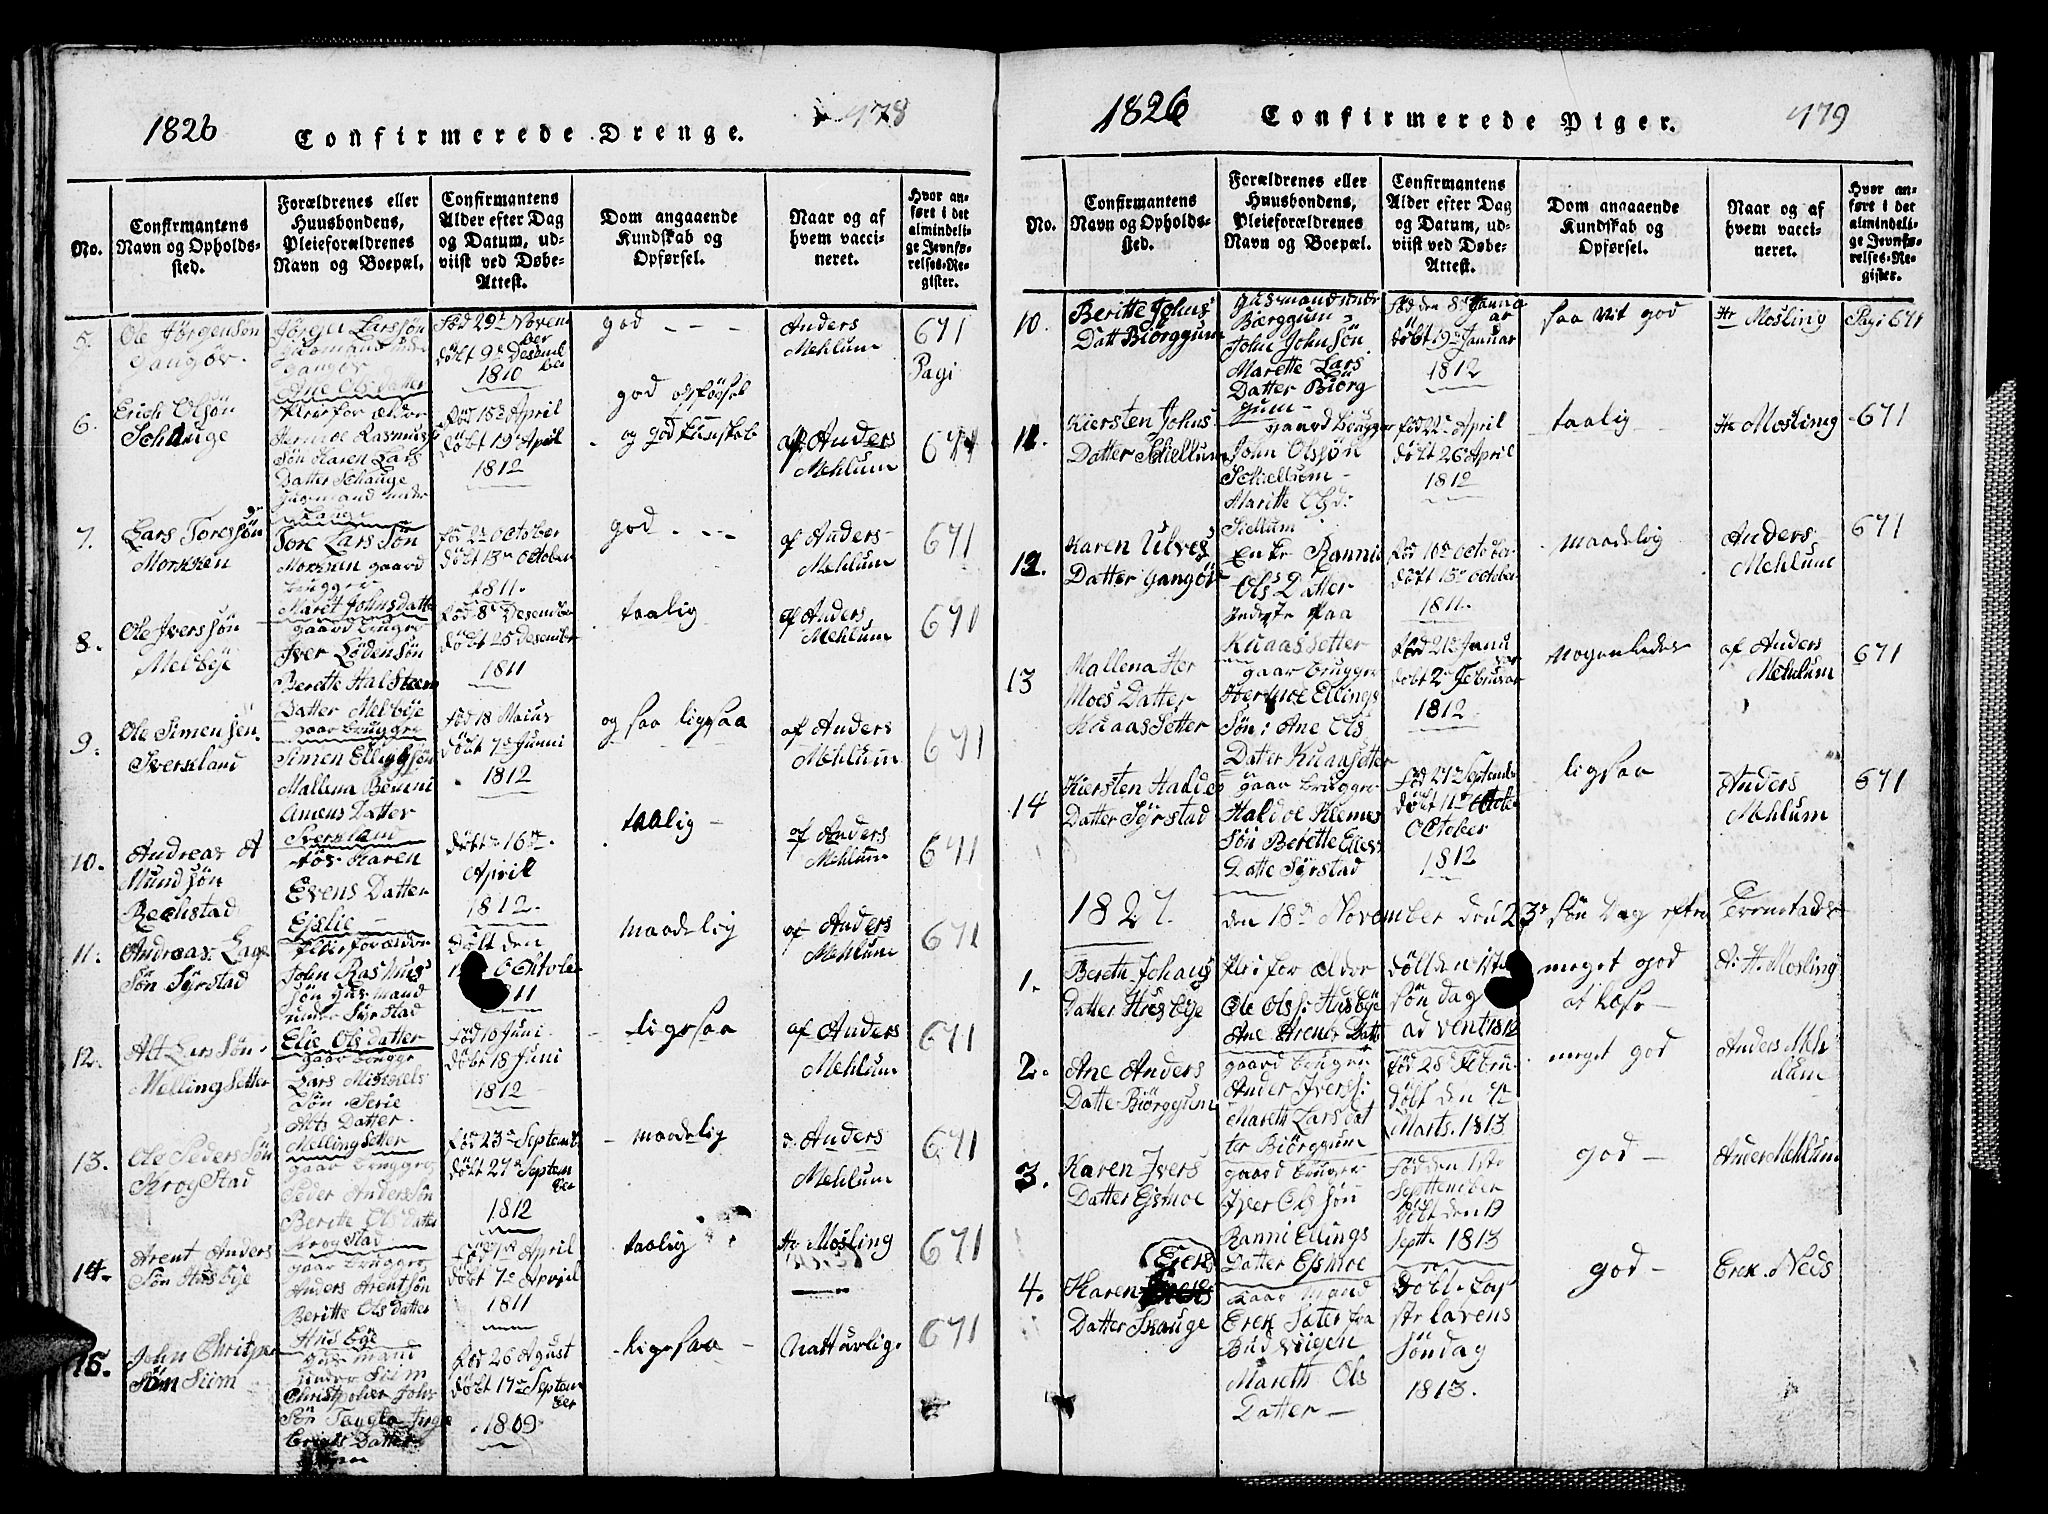 1826
Confirmerede Drenge.
478
No.
Confirmantens
Navn og Opholds-
sted.
Forældrenes eller
Huusbondens,
Pleieforældrenes
Navn og Boepæl.
Confirmantens
Alder efter Dag
og Datum, ud-
viist ved Døbe-
Attest.
Dom angaaende
Kundskab og
Opførsel.
Naar og af
hvem vacci-
neret.
Hvor an-
ført i det
almindeli-
ge Jevnfø-
relses-Re-
gister.
5.
Ole Jørgensøn
Gangør.
Jørgen Larssøn
Gangør
Ane Olsdatter
Fød 29de Novem
ber
døbt 9de Desem
ber
1810
god
Anders
Mehlum
671
Pagi
6.
Erich Olsøn
Schauge
Rasmus
Søn Karen Lars
Datter Schauge
Fød 15de April
døbt 19de April
1812
god
og god Kunskab
af Anders
Mehlum
671
7.
Lars Toressøn
Morkken
Tore Larssøn
Morkken gaard
brugger
Maret Johnsdatte
Fød 2de October
døbt 13de October
1811.
god
af Anders
Mehlum
671
8.
Ole Iverssøn
Melbye
gaard brugge
Iver Lødensøn
Berette Halsteen
Datter Melbye
Fød 8de Desember
døbt 25 Desember
1811
taalig
af Anders
Mehlum
671
9.
Ole Simensen
Sverkland
gaar brugge
Simen Ellingsøn
Mallena Benni
Amens Datter
Sverkland
Fød 18 Maius
døbt 7de Junni
1812
og saa ligesaa
af Anders
Mehlum
671
10.
Andreas A
Mundsøn
Rechstad
Karen
Evens Datter
Eislie
døbt 16de
April
1812.
taalig
af Anders
Mehlum
671
11.
Andreas Lars
Søn Syrstad
John Rasmus
søn Husmand
under Syrstad
Elie Olsdatter
Døbt den
Oktober
1811
maadelig
af Anders
Mehlum
671
12.
Alt Larssøn
Mellingsetter
gaar brugge
Lars Mikkels
Søn Serie
Alts Datter
Mellingsetter
Fød 10 Juni
Døbt 18 Juni
1812
ligesaa
af Anders
Mehlum
671
13.
Ole Pederssøn
Krogstad
gaar brugger
Peder Anderssøn
Beritte Olsdatter
Krogstad
Fød 23de Septemb
døbt 27de Septem
ber
1812
maadelig
Anders
Mehlum
671
14.
Arent Anders
Søn Husbye
gaar brugger
Anders Arentsøn
Beritte Olsdatter
Husbye
April
døbt 7de April
1811
taalig
Hr Mosling
671
15.
John Chritper
Søn Siim
Husmand
under Siim
Christpher Johs
Søn
Erichs Datter
Fød 26 Agust
Døbt 17de Septem
ber
1809
ligesaa
Natturlig
671
1826
Confirmerede Piger.
479
No.
Confirmantens
Navn og Opholds-
sted.
Forældrenes eller
Huusbondens,
Pleieforældrenes
Navn og Boepæl.
Confirmantens
Alder efter Dag
og Datum, ud-
viist ved Døbe-
Attest.
Dom angaaende
Kundskab og
Opførsel.
Naar og af
hvem vacci-
neret.
Hvor an-
ført i det
almindeli-
ge Jevnfø-
relses-Re-
gister.
10.
Beritte Johns
Datt Biørggum
Husmand under
Bærggum
John Johnsøn
Marette Lars
Datter Biørg
gum
Fød den 8de Janua
døbt 19de Januar
1812
saa vit god
Hr Mosling
Pagi 671
11.
Kiersten Johns
Datter Skiellum
gaard brugger
John Olssøn
Skiellum
Maritte Olsd:
Skiellum
Fød 22de April
døbt 26 April
1812
taalig
Hr Mosling
671
12.
Karen Ulves
Datter Gangør
Enke Ranni
Ols Datter
Indeste paa
Knaassetter
Fød 10de October
døbt 15de October
1811.
maadelig
Anders
Mehlum
671
13
Mallena Her
Moes Datter
Knaassetter
gaar brugger
Hermoe Ellings
Søn: Ane Ols
Dater Knaasetter
Fød 21de Janu
døbt 2de Februar
1812
Nogenledes
af Anders
Mehlum
671
14
Kiersten Haldes
Datter Syrstad
gaar brugger
Haldoe Klemes
søn Berette Elles
Datte Syrstad
Fød 27de Septemb
døbt 11de
October
1812
ligesaa
Anders
Mehlum
671
1827.
den 18de November den 23de søn Dag efter Trenetades
1.
Bereth Johans
Datter Husbye
Pleiforældor
Ole Ols: Husbye
Ane Arenes Datt
døbt den 1ste
søndag
advent 1812
meget god
at læse
Hr. Mosling
2.
Ane Anders
Datte Biørggum
gaard bruger
Ander Ivers:
Mareth Larsdat
ter Biørggum
Fød 28de Febru
døbt den 7de
Marts. 1813
meget god
Anders Meh
lum
3.
Karen Ivers
Datter Eismoe
gaard brugre
Iver Olssøn
Ranni Ellings
Datter Eismoe
Fød den 1ste
Septtember
Døbt den 19
Septt. 1813
god
Ander Mehlum
4.
Karen Ereks
Datter Skauge
gaar mand
Erek Sæter fra
Budviigen
Mareth Ols
Datter
Døbt
søndag
1813.
god
Erek. Neds